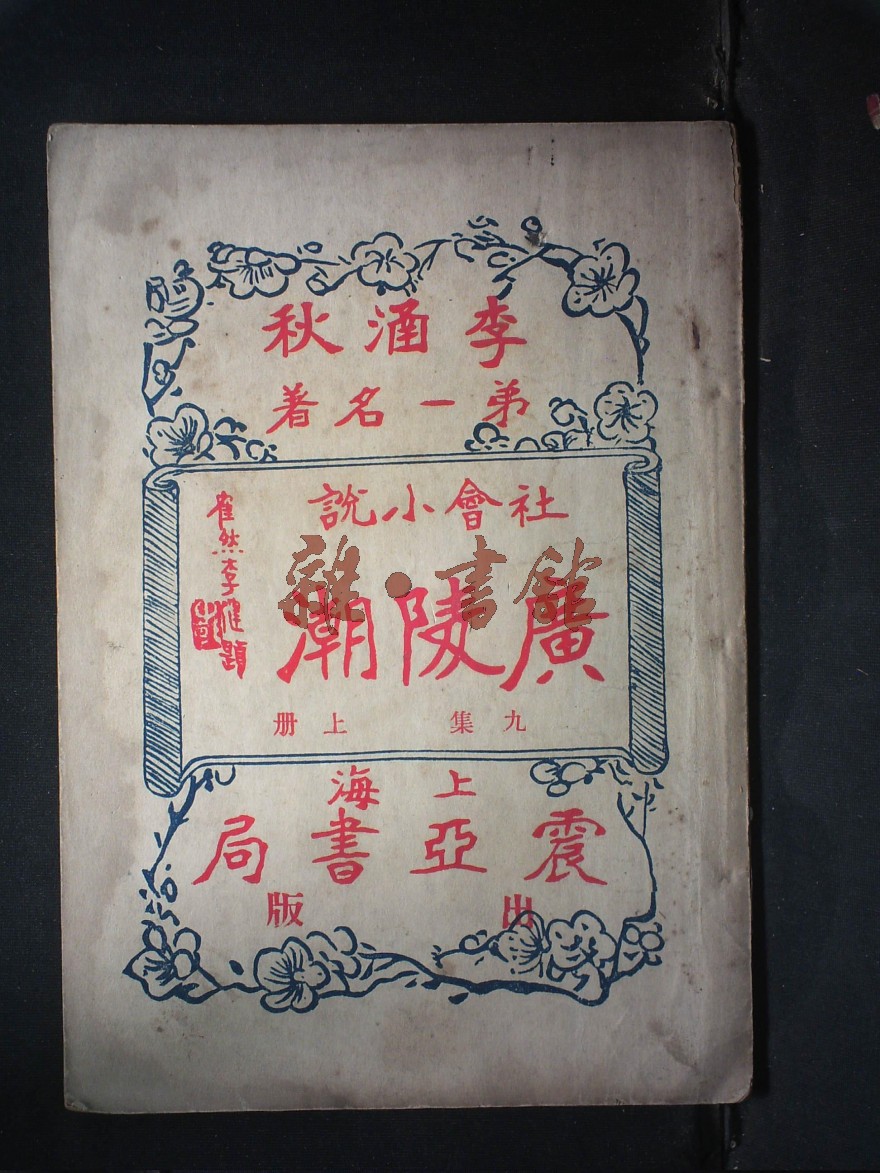 李涵秋
弟一名著
社會小說
廣陵潮
九集 上册
崔然李 題
上海
震亞書局
出版
雜·書館